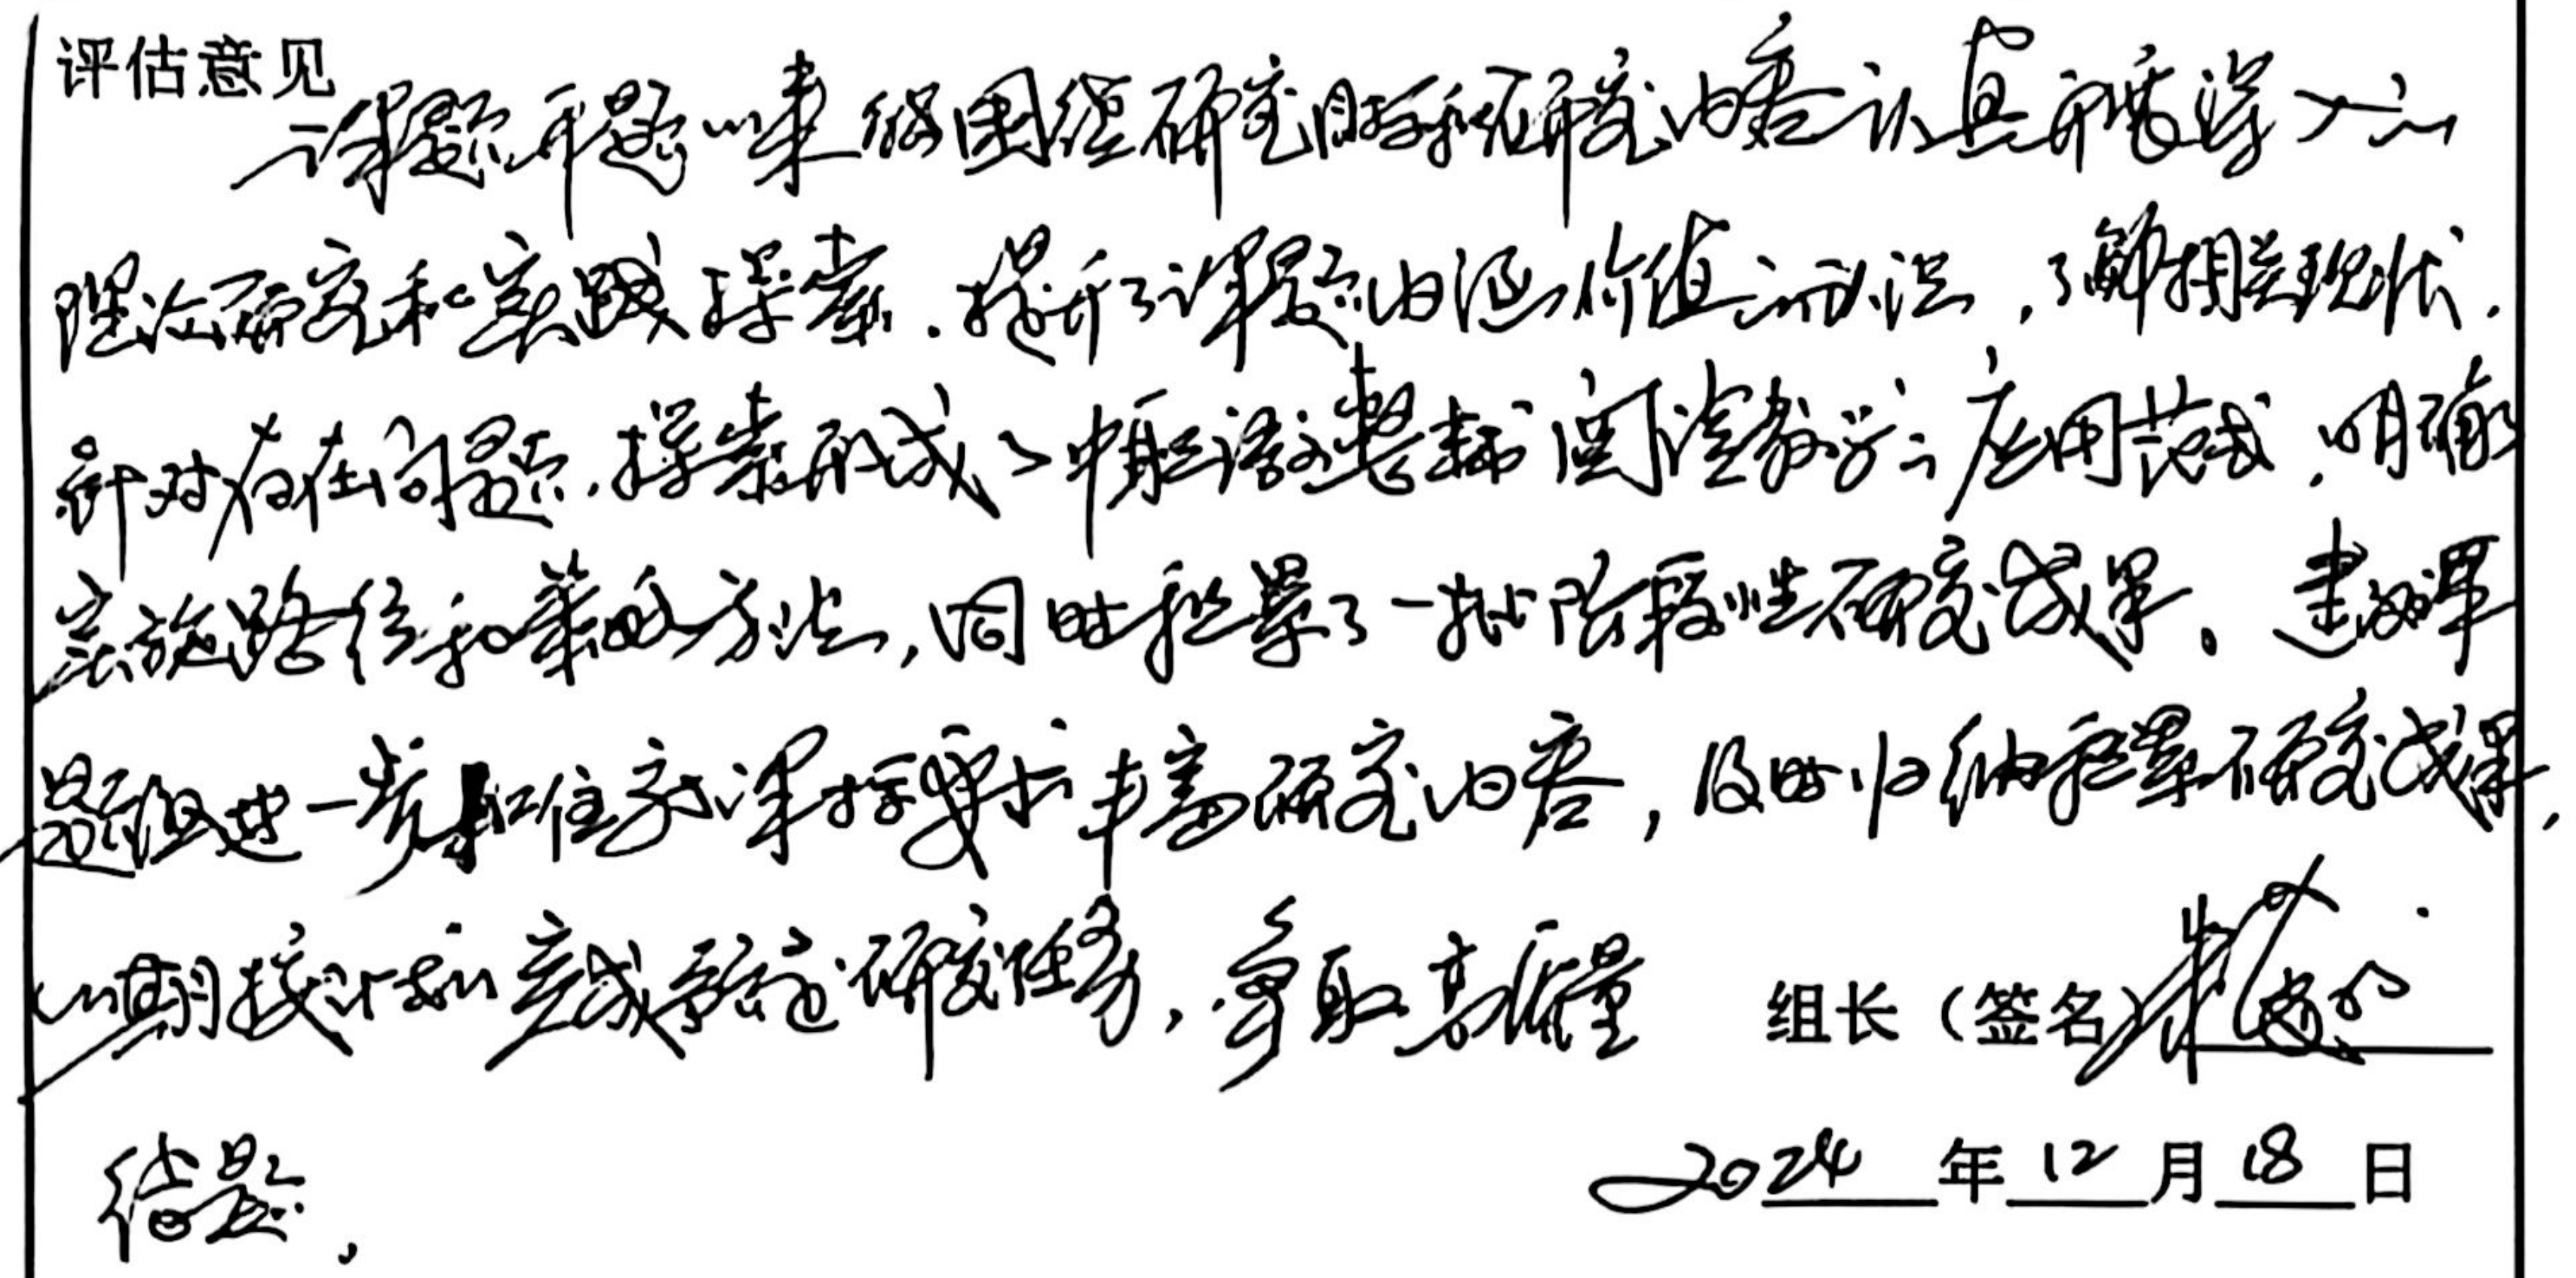 评估意见
课题开题以来能围绕研究目标和研究内容认真开展深入的
理论研究和实践探索，提升了课题内涵价值的认识，了解相关现状，
针对存在问题，探索形成了中职语文整本书阅读教学的应用范式，明确了
实施路径和策略方法，同时积累了一批阶段性研究成果。建议课
题组进一步扣住新课标要求丰富研究内容，及时归纳积累研究成果，
以期按计划完成预定研究任务，争取高质量
组长（签名）
结题，
2024年12月18日